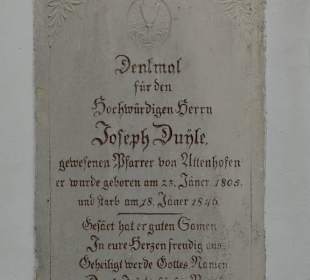 Denkmal
für den
Hochwürdigen Herrn
Joseph Duÿle,
gewesenen Pfarrer von Attenhofen
er wurde geboren am 23. Jäner 1805.
und starb am 18. Jäner 1846.
Gesäet hat er guten Samen
In eure Herzen freudig aus.
Geheiligt werde Gottes Namen